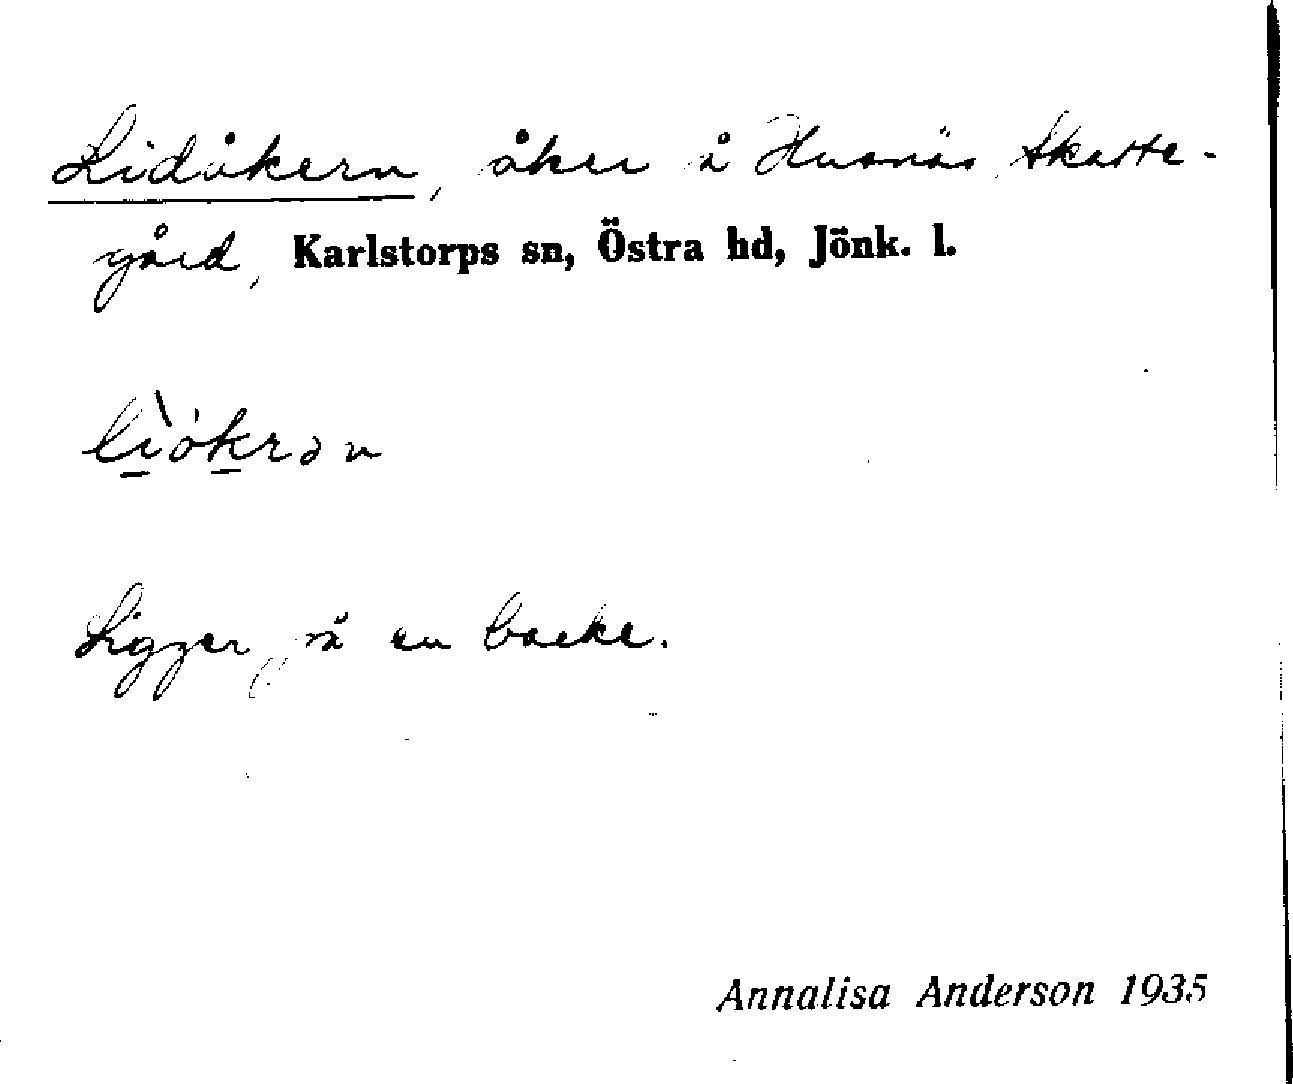 Lidåkern, åker å Husnäs Skatte-
gård, Karlstorps sn, Östra hd, Jönk. l.
lì̠ók̠rən
Ligger på en backe.
Annalisa Anderson 1935